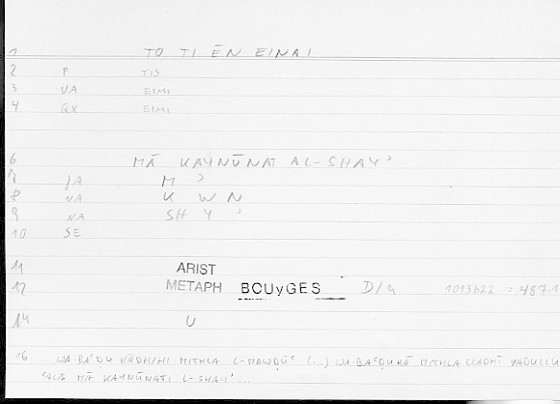 1 TO TI ĒN EINAI
2 P TIS
3 VA EIMI
4 QX EIMI
6 MĀ KAYNŪNAT AL-SHAYʾ
7 JA M ʾ
8 NA K W N
9 NA SH Y ʾ
10 SE
11 ARIST
12 METAPH BOUyGES D/4 1013b22 = 487.1
14 U
16 ... WA BAʿDU HĀDHIHI MITHLA L-MAWDŪʿ (...) WA-BAʿDUHĀ MITHLA LLADHĪ YADULLU
ʿALĀ MĀ KAYNŪNATI L-SHAYʾ ...